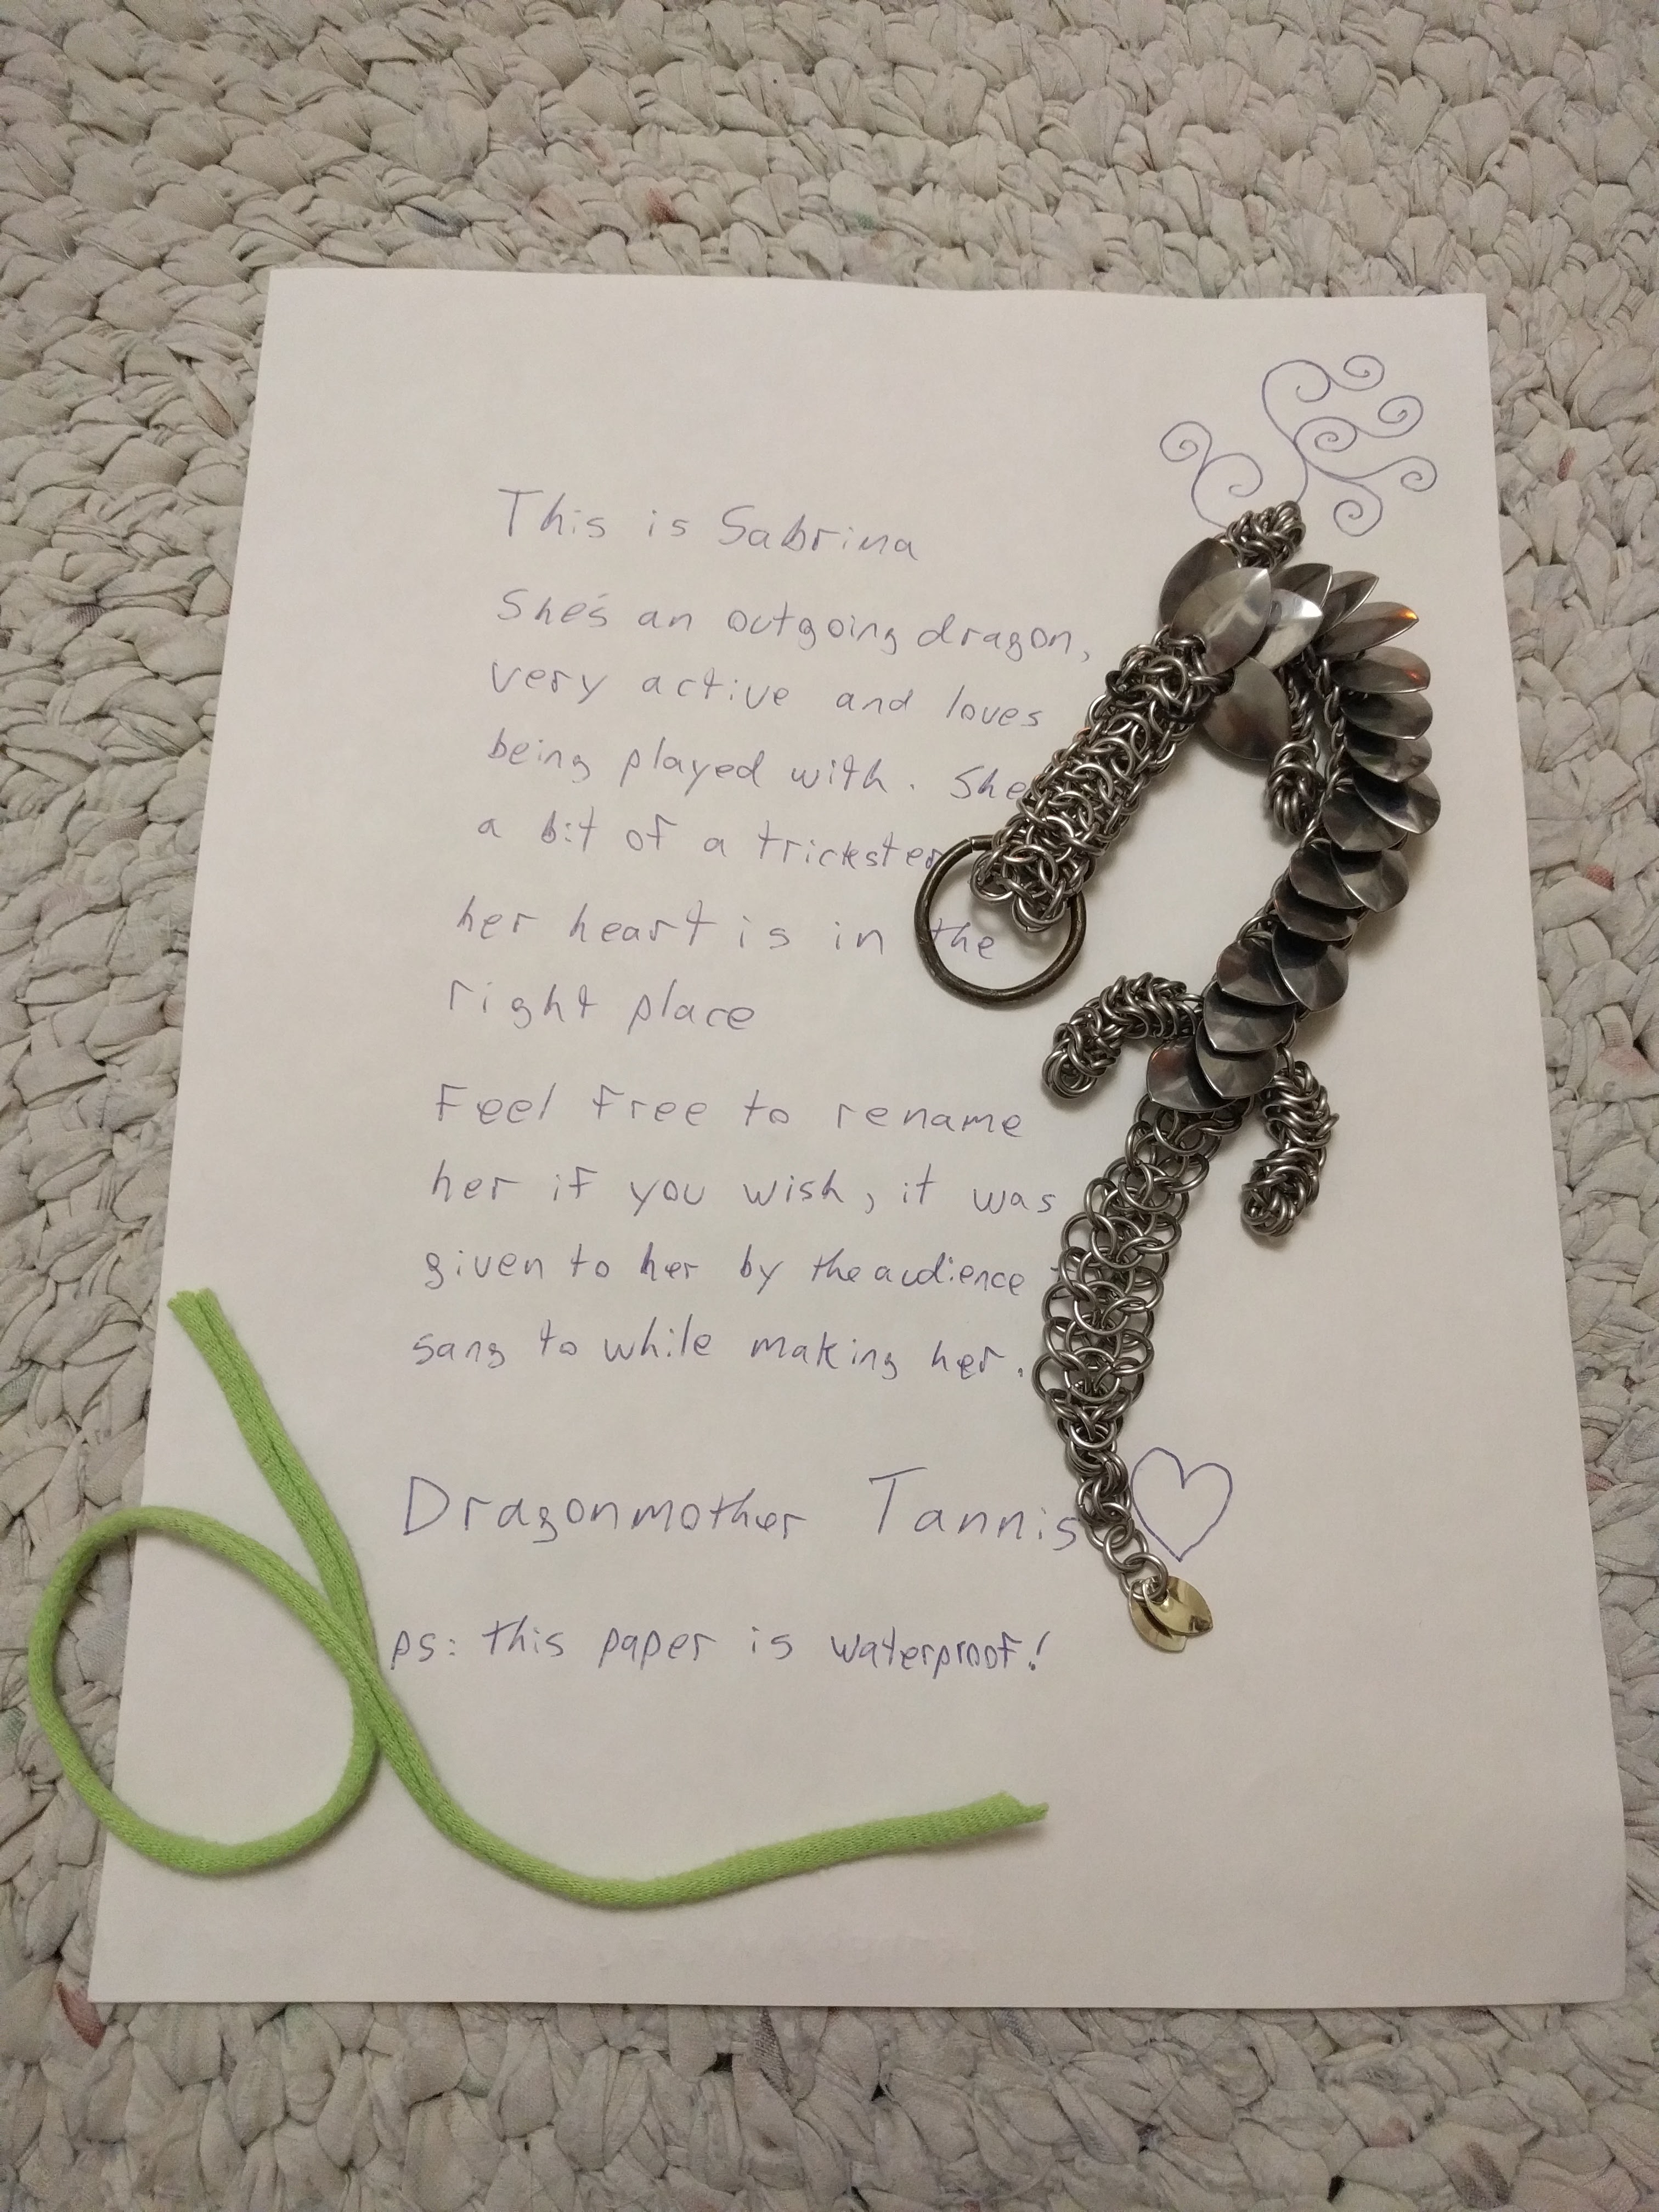 This is Sabrina
She's an outgoing dragon,
very active and loves
being played with. She
a bit of a trickster
her heart is in the
right place
Feel free to rename
her if you wish, it was
given to her by the audience
sang to while making her.
Dragonmother Tannis
ps: this paper is waterproof!